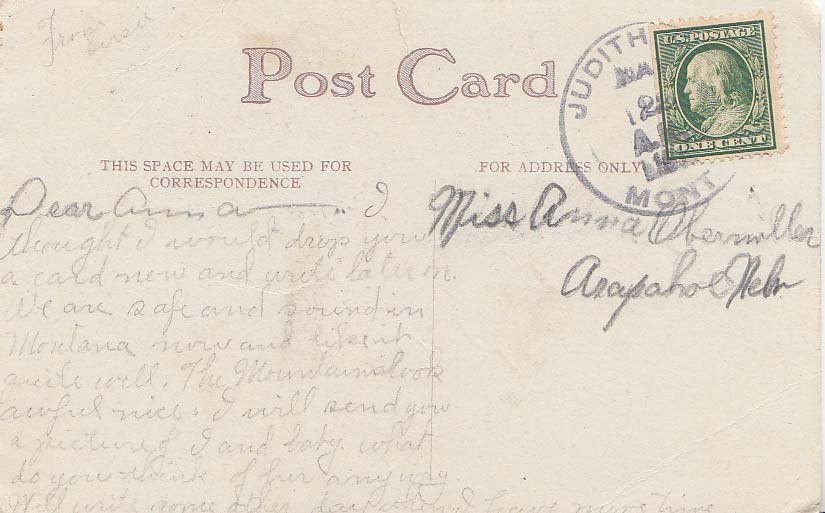 From
Post Card
JUDITH
24
A.M.
MONT
U.S. POSTAGE
ONE CENT
THIS SPACE MAY BE USED FOR
CORRESPONDENCE
FOR ADDRESS ONLY
Miss Anna Obermiller
Arapahoe Nebr
Dear Anna I
thought I would drop you
a card now and write later on.
We are safe and sound in
Montana now and like it
quite well. The Mountains look
awful nice. I will send you
a picture of I and baby what
do you think of her any way
Will write some other day when I have more time